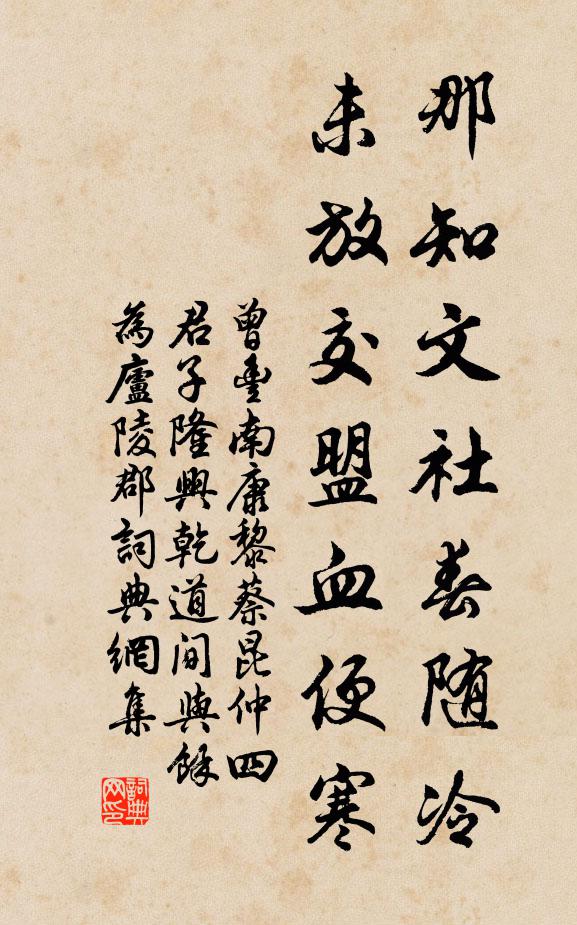 那知文社春随冷
未放交盟血便寒
曾豊南康黎蔡昆仲四
君子隆興乾道间與馀
為廬陵郡詞典網集
詞典网印